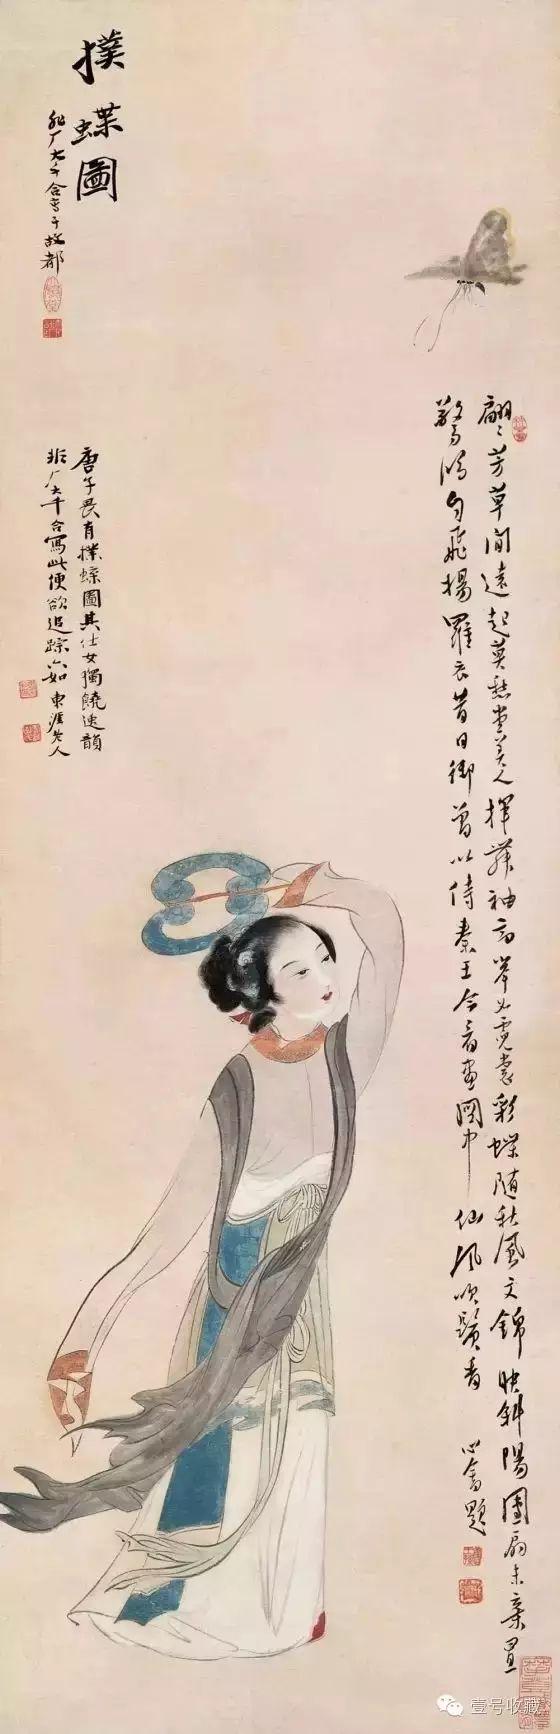 撲蝶圖
非厂大千合寫于故都
翩〻芳草間遠起莫愁堂美人揮舞袖高舉如霓裳彩蝶隨秋風文錦映斜陽團扇未棄置
驚鴻自飛揚羅衣昔日御曾以侍秦王今看畫圖中仙風吹鬢香 心畬題
唐子畏有撲蝶圖其仕女獨饒逸韻
非厂大千合寫此便欲追踪六如 東涯老人
壹号收藏